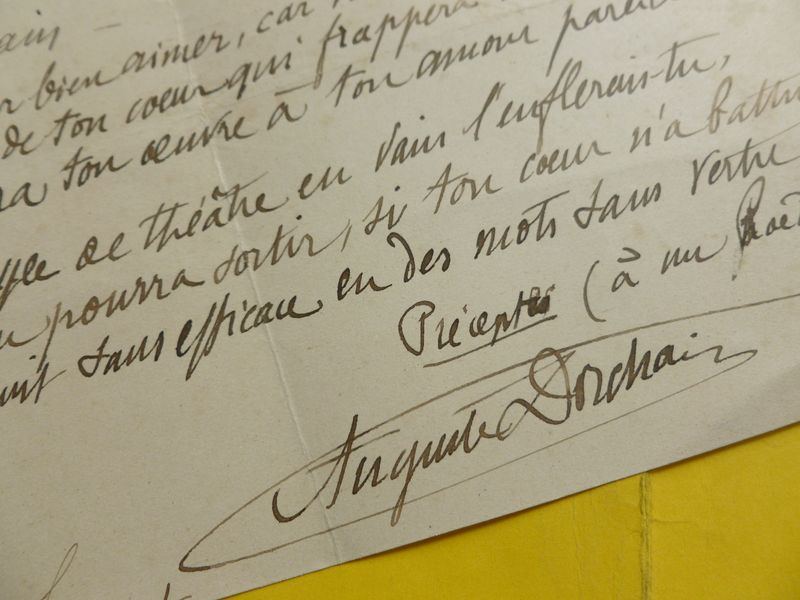 bien aimer, car
de ton coeur qui frappera
ton œuvre à ton amour
de théâtre en vain l'enflerais-tu,
pourra sortir, si ton coeur n'a battu
sans efficace en des mots sans vertu
Préceptes (à un Poète
Auguste Dorchain